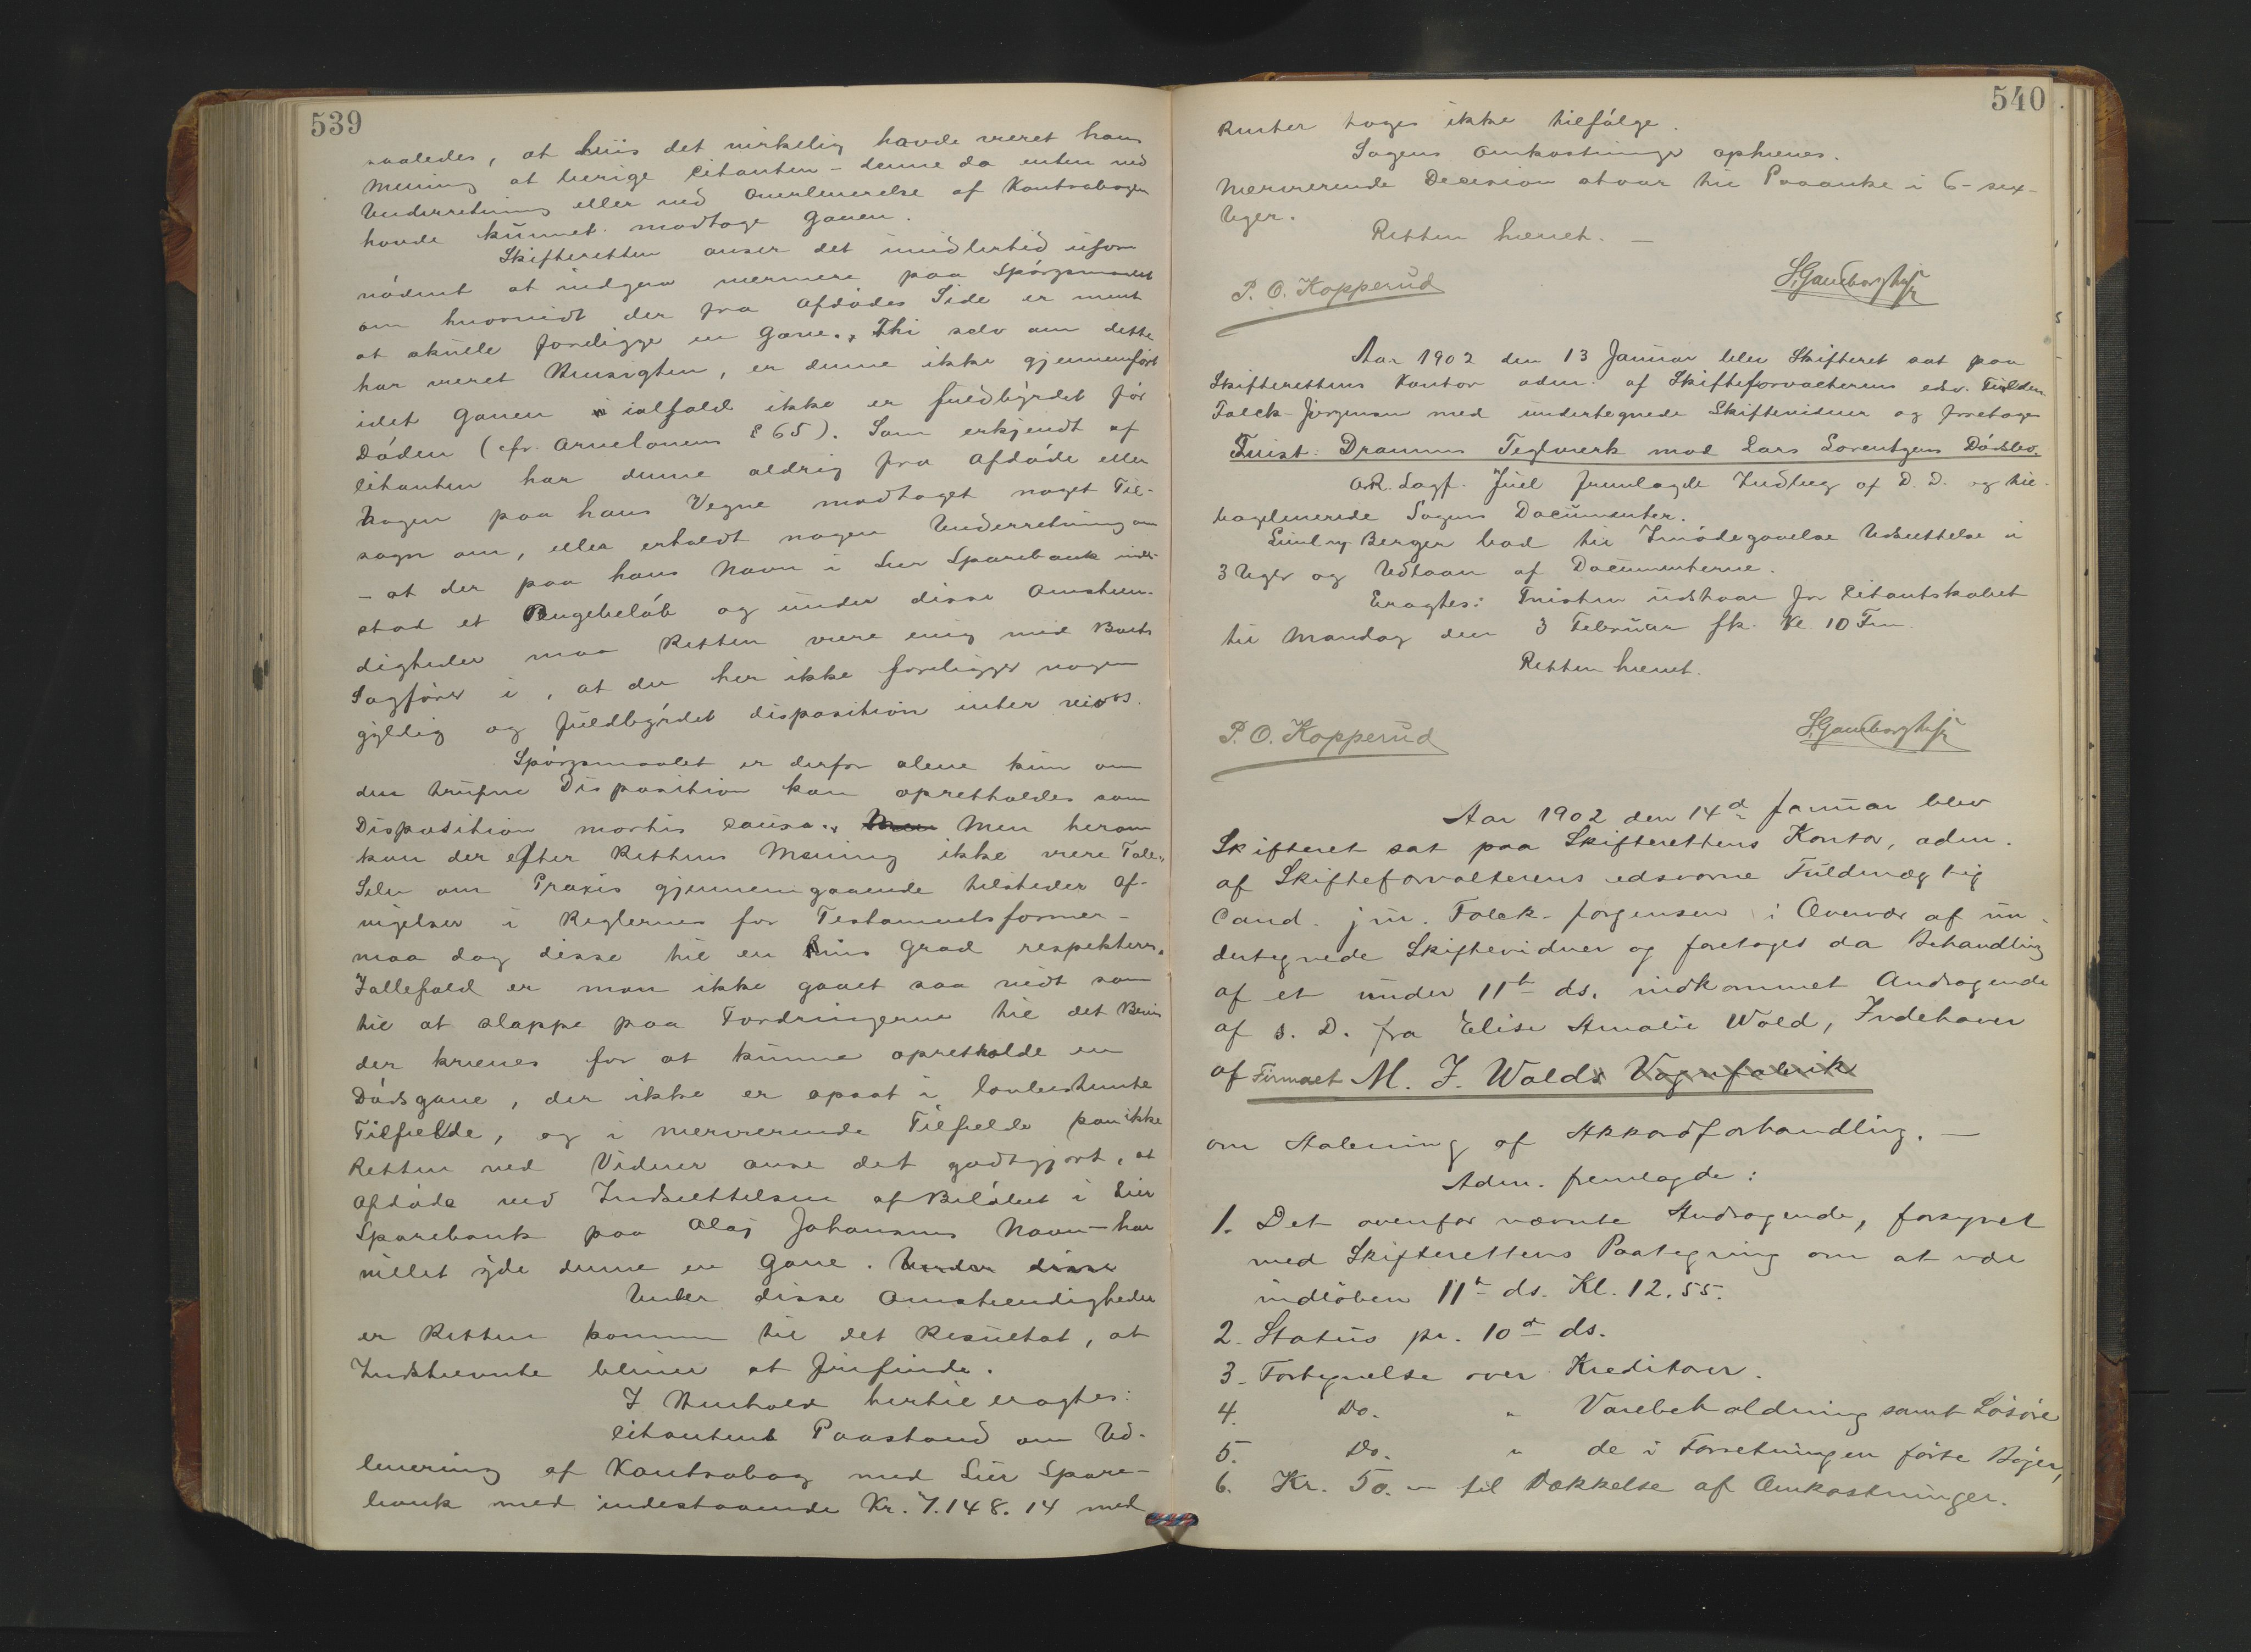 539
saaledes, at hvis det virkelig havde været hans
Mening at berige Citanten – denne da enten ved
Underretning eller ved Overleverelse af Kontrabogen
havde kunnet modtage Gaven.
Skifteretten anser det imidlertid ufor
nødent at indgaa nærmere paa Spørgsmaalet
om hvorvidt der fra Afdødes Side er ment
at skulle foreligge en Gave. Thi selv om dette
har været Hensigten, er denne ikke gjennemført
idet Gaven ialfald ikke er fuldbyrdet før
Døden (cfr. Arvelovens § 65). Som erkjendt af
Citanten har denne aldrig fra Afdøde eller
Nogen paa hans Vegne modtaget noget Til-
sagn om, eller erholdt nogen Underretning om
– at der paa hans Navn i Lier Sparebank inde-
stod et Pengebeløb og under disse Omstæn-
digheder maa Retten være enig med Boets
Sagfører i, at der her ikke foreligger nogen
gyldig og fuldbyrdet disposition inter vivos.
Spørgsmaalet er derfor alene kun om
den trufne Disposition kan opretholdes som
Disposition mortis causa. Men Men herom
kan der efter Rettens Mening ikke være Tale.
Selv om Praxis gjennemgaaende tilsteder Af-
vigelser i Reglerne for Testamentsformer –
maa dog disse til en vis Grad respekteres.
Iallefald er man ikke gaaet saa vidt som
til at slappe paa Fordringerne til det Bevis
der kræves for at kunne opretholde en
Dødsgave, der ikke er opsat i lovbestemte
Tilfælde, og i nærværende Tilfælde kan ikke
Retten ved Vidner anse det godtgjort, at
Afdøde ved Indsættelsen af Beløbet i Lier
Sparebank paa Olaj Johansens Navn – har
villet yde denne en Gave. Under disse
Under disse Omstændigheder
er Retten kommen til det Resultat, at
Indstævnte bliver at frifinde.
I Henhold hertil eragtes:
Citantens Paastand om Ud-
levering af Kontrabog med Lier Spare-
bank med indestaaende Kr. 7.148.14 med
540
Renter toges ikke tilfølge.
Sagens Omkostninger ophæves.
Nærværende Decision atvar til Paaanke i 6 – sex –
Uger.
Retten hævet. –
P. O. Kopperud
Aar 1902 den 13 Januar blev Skifteret sat paa
Skifterettens Kontor adm. af Skifteforvalterens edsv. Fuldm.
Falck-Jørgensen med undertegnede Skiftevidner og foretoges
Tvist: Drammens Teglværk mod Lars Lorentzens Dødsbo.
O.R. Sagf. Juel fremlagde Indlæg af D. D. og til-
bageleverede Sagens Documenter.
Berger bad til Imødegaaelse Udsættelse i
3 Uger og Udlaan af Documenterne.
Eragtes: Tvisten udstaar for Citantskabet
til Mandag den 3 Februar fk. Kl 10 Fm.
Retten hævet.
P. O. Kopperud
Aar 1902 den 14d Januar blev
Skifteret sat paa Skifterettens Kontor, adm.
af Skifteforvalterens edsvorne Fuldmægtig
Cand. jur. Falck-Jørgensen i Overvær af un-
dertegnede Skiftevidner og foretoges da Behandling
af et under 11t ds. indkommet Andragende
af s. D. fra Elise Amalie Wold, Indehaver
af Firmaet M. J. Wolds Vognfabrik
om Aabning af Akkordforhandling. –
Adm. fremlagde:
1. Det ovenfor nævnte Andragende, forsynet
med Skifterettens Paategning om at være
indløben 11t ds. Kl. 12.55.
2. Status pr. 10d ds.
3. Fortegnelse over Kreditorer.
4. Do. " Varebeholdning samt Løsøre
5. Do. " de i Forretningen førte Bøger,
6. Kr. 50. – til Dækkelse af Omkostninger.